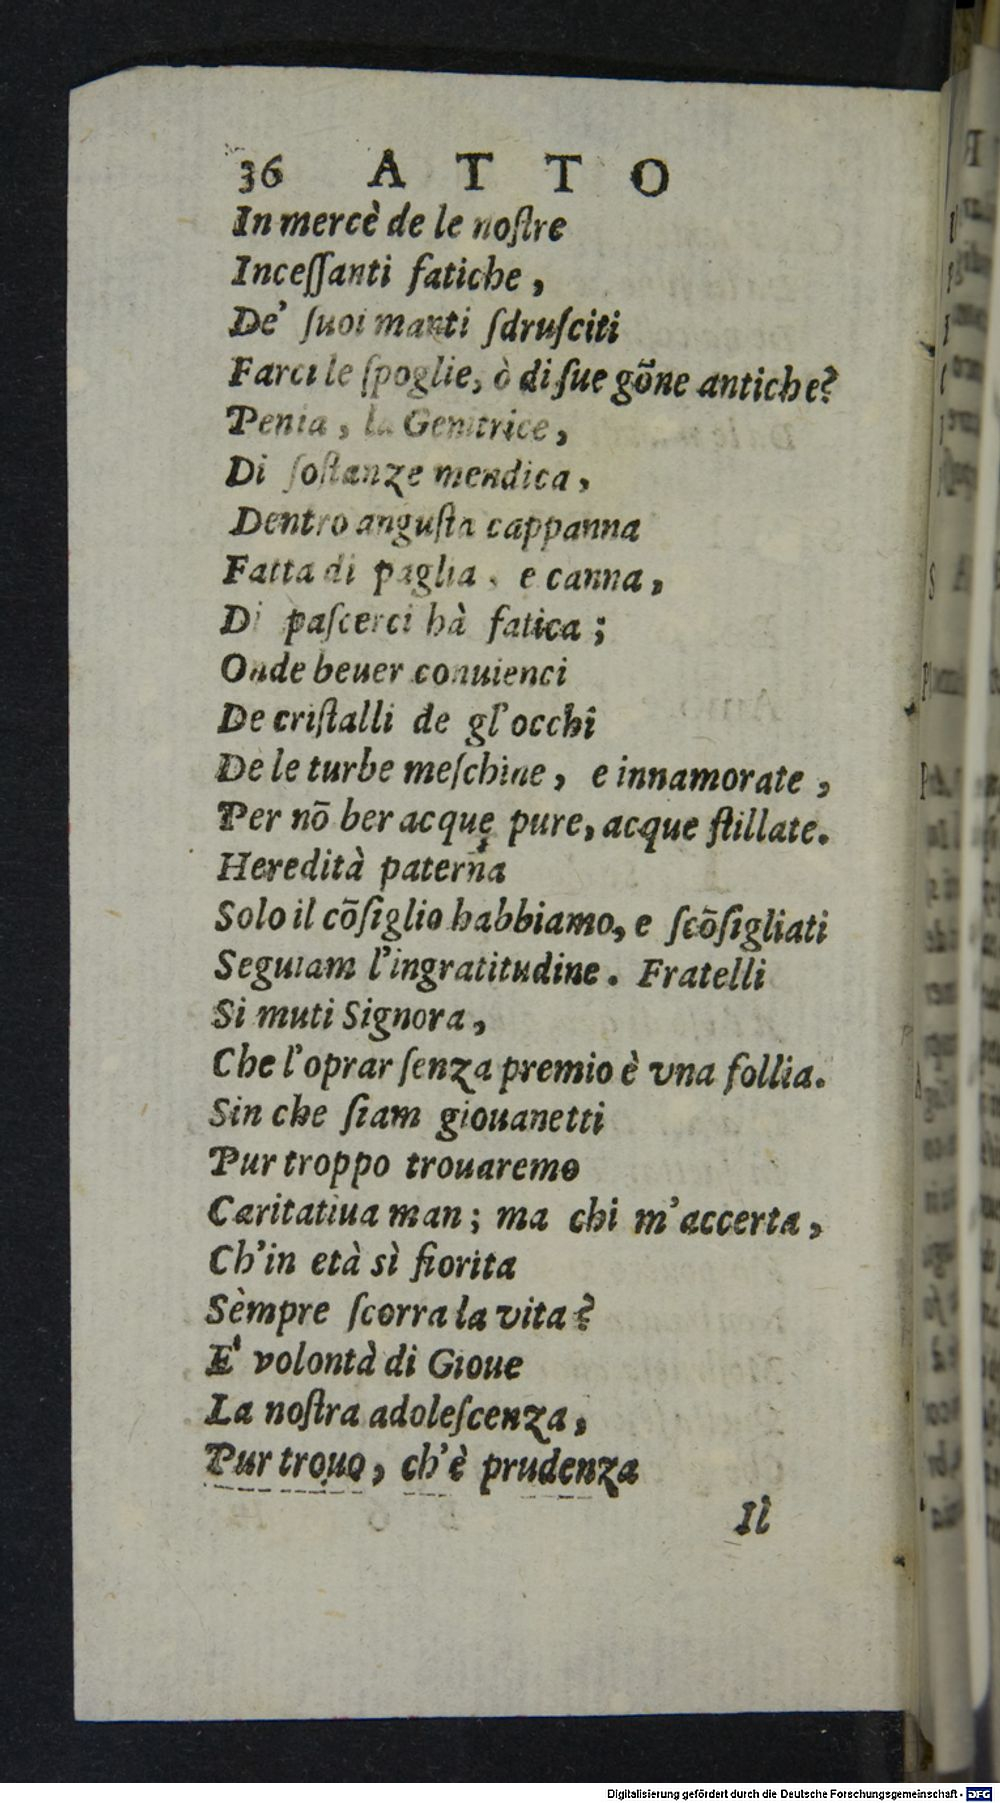 36 ATTO
In mercè de le noſtre
Inceſſanti fatiche,
De' ſuoi manti ſdruſciti
Farci le ſpoglie, ò di ſue gõne antiche?
Penia, la Genitrice,
Di ſoſtanze mendica,
Dentro anguſta cappanna
Fatta di paglia, e canna,
Di paſcerci hà fatica;
Onde beuer conuienci
De criſtalli de gl'occhi
De le turbe meſchine, e innamorate,
Per nõ ber acque pure, acque ſtillate.
Heredità paterna
Solo il cõſiglio habbiamo, e ſcõſigliati
Seguiam l'ingratitudine. Fratelli
Si muti Signora,
Che l'oprar ſenza premio è vna follia.
Sin che ſiam giouanetti
Pur troppo trouaremo
Caritatiua man; ma chi m'accerta,
Ch'in età sì fiorita
Sèmpre ſcorra la vita?
E' volontà di Gioue
La noſtra adoleſcenza,
Pur trouo, ch'è prudenza
Il
Digitalisierung gefördert durch die Deutsche Forschungsgemeinschaft - DFG